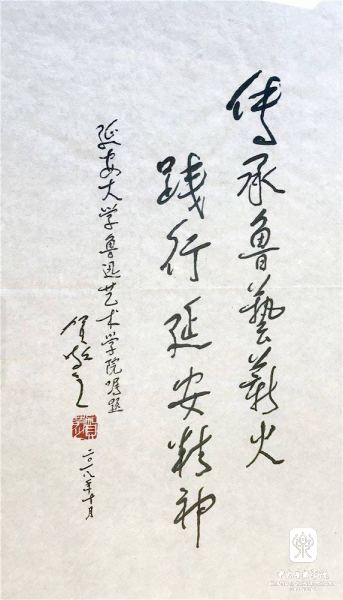 传承鲁藝薪火
践行延安精神
延安大学鲁迅艺术学院嘱题
贺敬之
二〇一八年十月